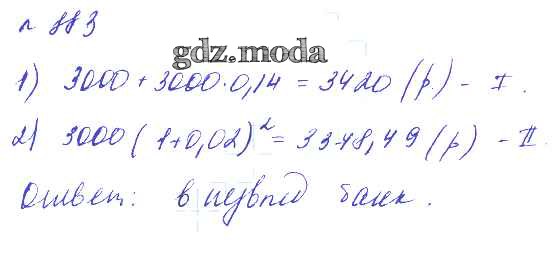 № 883
gdz.moda
1) 3000 + 3000 · 0,14 = 3420 (р.) – I.
2) 3000 (1+0,02)² = 3348,49 (р) – II
Ответ: в первый банк.